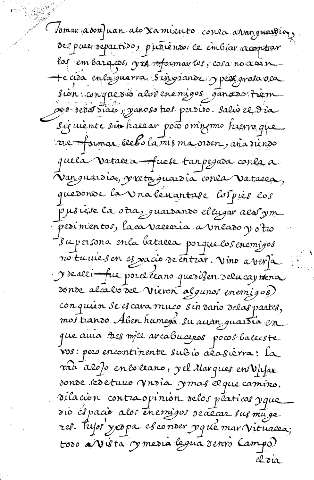 tomar a don Juan alojamiento con la avanguardia,
despues repartido, pudiendo le embiar a cortar
los embarços, y reformarlos, cosa no acon
tecida en la guerra sin grande y peligrosa oca
sion. con que dio a los enemigos ganado tiem
po de dos dias, y a nosotros perdido. salio el dia
siguiente sin hallar poco o ningun hierro que
reformar llebo la misma orden, añadiendo
que la batalla fuese tan pegada con la a
vanguardia, y retaguardia con la batalla
que donde la una levantase los pies los
pusiese la otra, guardando el lugar a los ym
pedimientos, la cavalleria a un lado y otro
su persona en la batalla porque los enemigos
no tuviesen espacio de entrar. vino a verja
y de alli fue por el llano que dizen de lucaynena
donde al cabo del vieron algunos enemigos
con quien se escaramuço sin daño de las partes,
mostrando Aben humeya su avanguardia en
que avia tres mil arcabuzeros pocos balleste
ros: pero encontinente subio a la sierra: la
nra alojo en lo llano, y el Marques en Uxixar
donde se detuvo un dia y mas el que camino.
dilacion contra opinion de los platicos y que
dio espacio a los enemigos de alçar sus muge
res. hijos y ropa esconder y quemar vitualla;
todo a vista y media legua de nro Campo
el dia